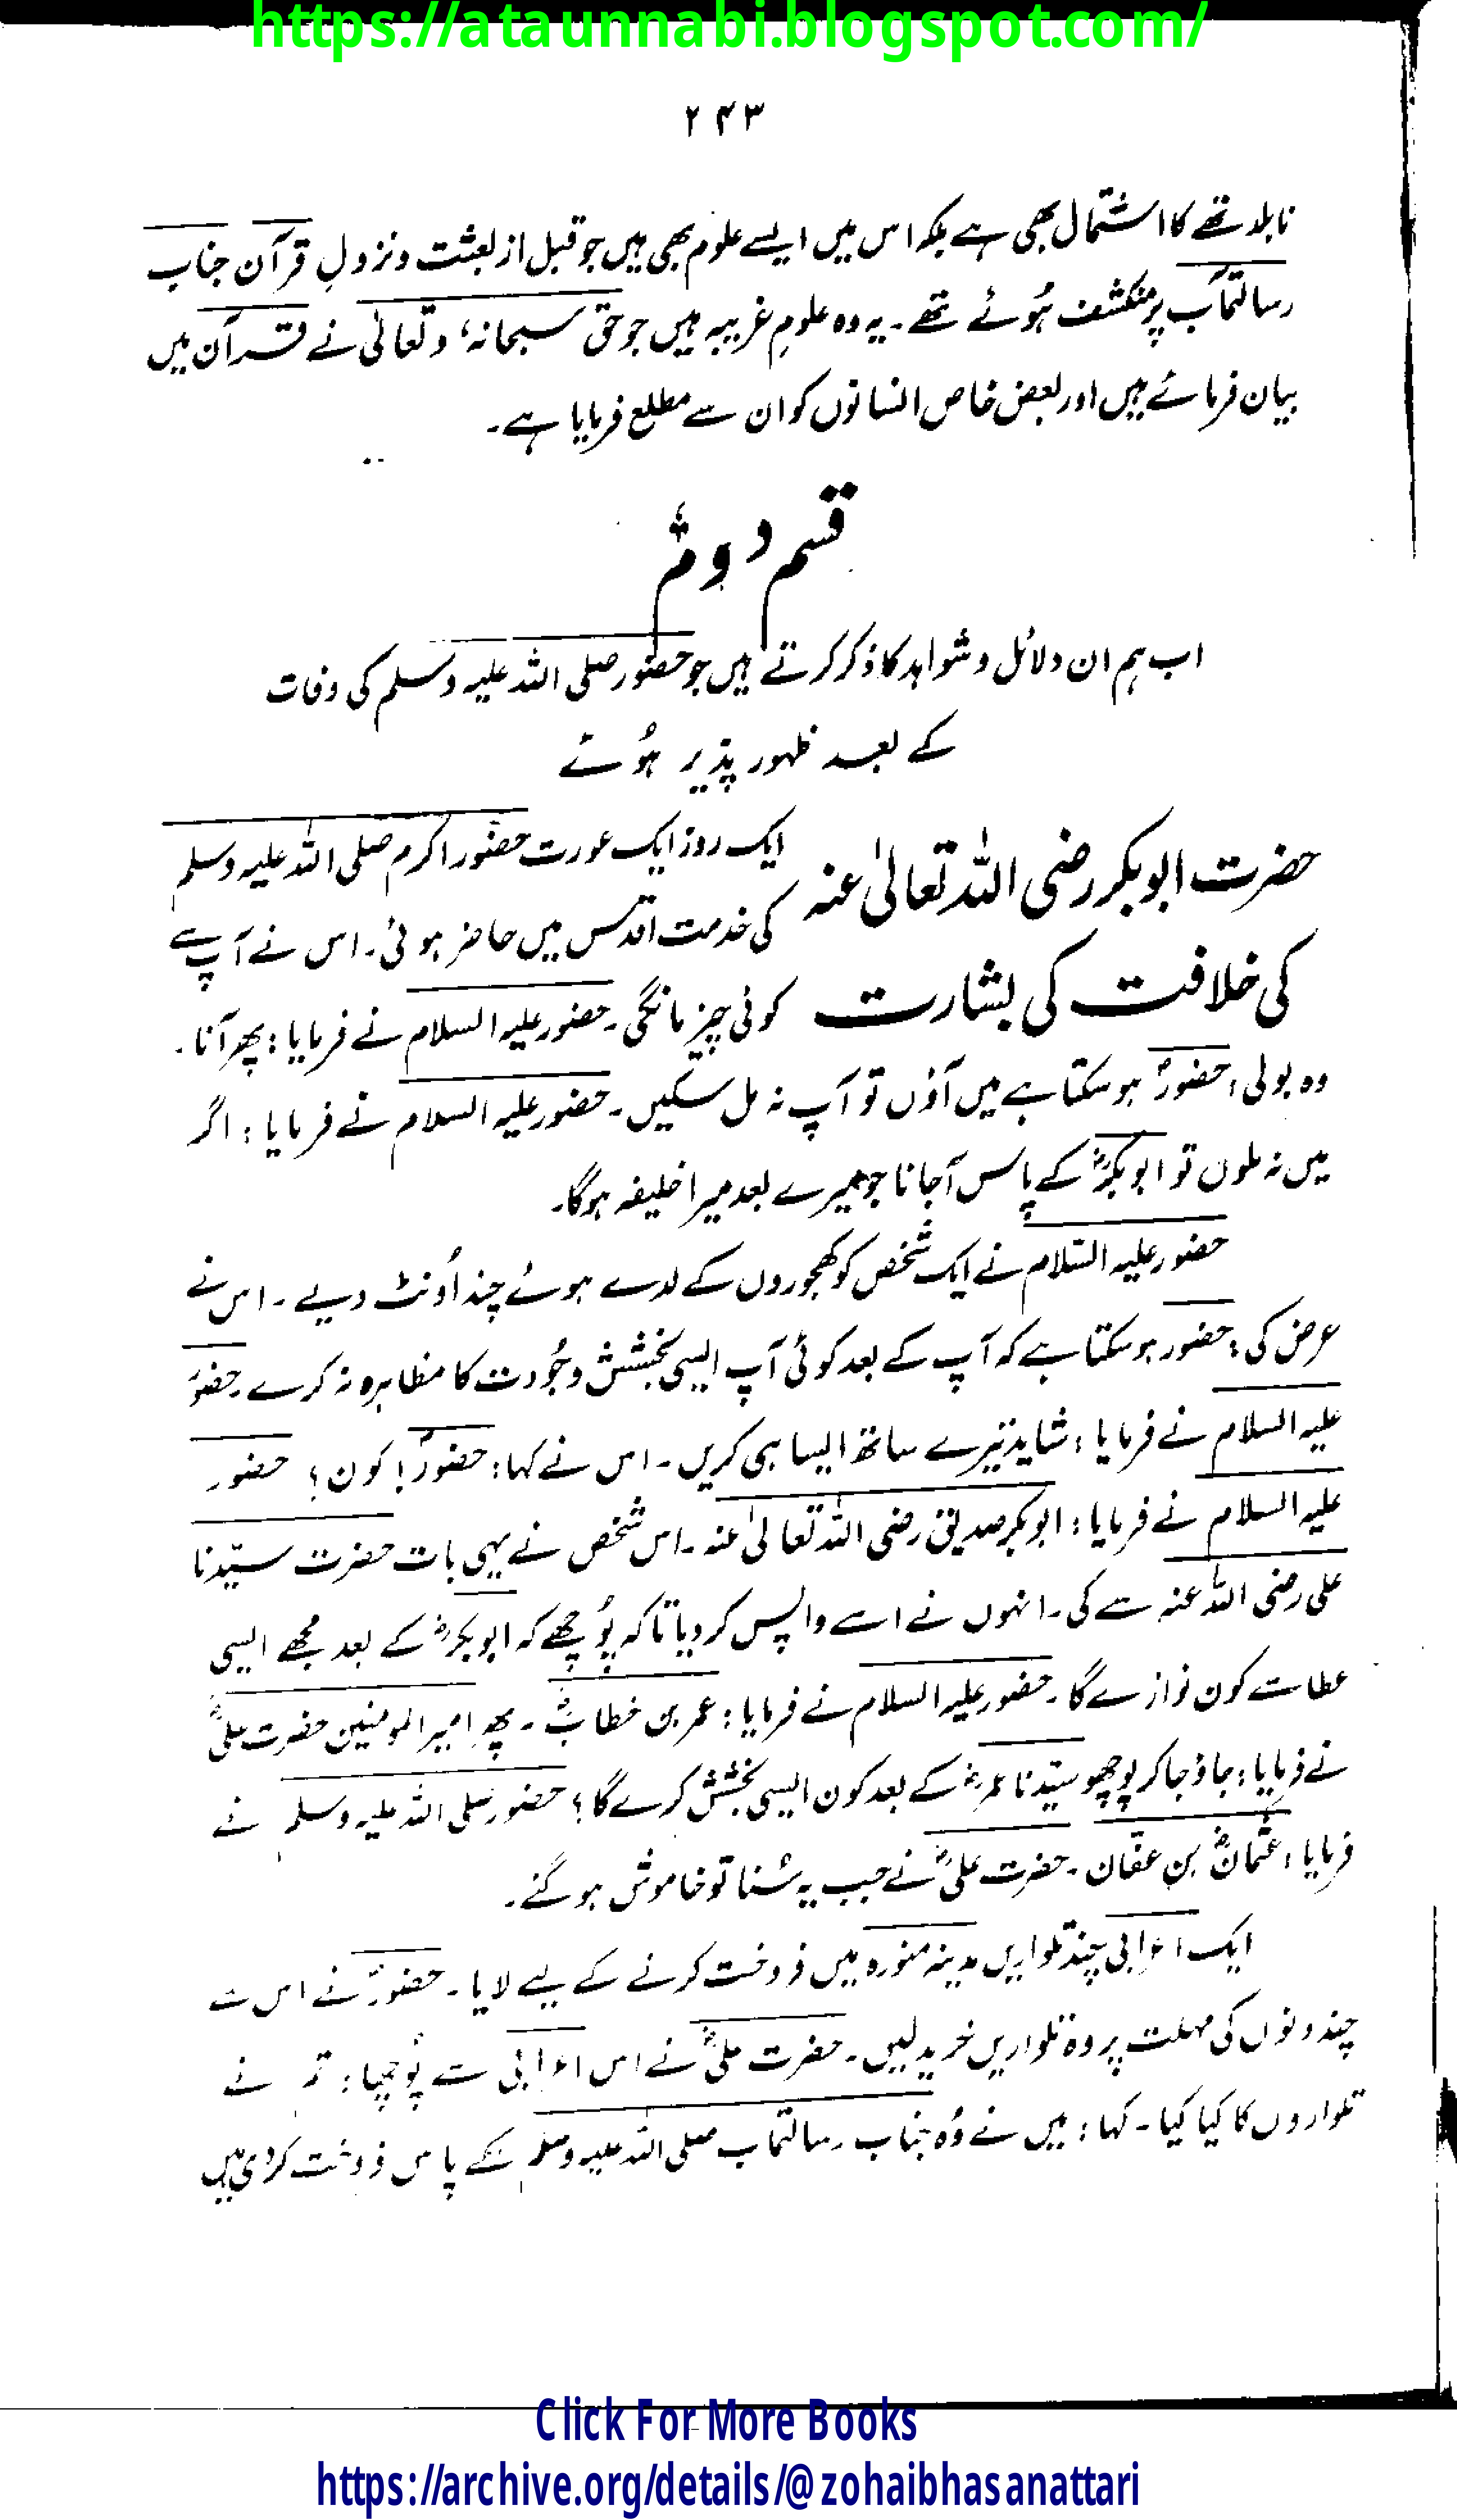 https://ataunnabi.blogspot.com/
۲۴۳
نابلد تھے کا اشتمال بھی ہے بلکہ اس میں ایسے علوم بھی ہیں جو قبل از بعثت و نزولِ قرآن جناب
رسالتمآب پر منکشف ہُوئے تھے۔ یہ وہ علومِ غریبہ ہیں جو حق سبحانہٗ وتعالیٰ نے قرآن میں
بیان فرمائے ہیں اور بعض خاص انسانوں کو ان سے مطلع فرمایا ہے۔
قسم دوم
اب ہم ان دلائل و شواہد کا ذکر کرتے ہیں جو حضور صلی اللہ علیہ وسلم کی وفات
کے بعد ظہور پذیر ہُوئے
حضرت ابوبکر رضی اللہ تعالیٰ عنہ
کی خلافت کی بشارت
ایک روز ایک عورت حضور اکرم صلی اللہ علیہ وسلم
کی خدمت اقدس میں حاضر ہوئی۔ اس نے آپ سے
کوئی چیز مانگی۔ حضور علیہ السلام نے فرمایا: پھر آنا۔
وہ بولی: حضورؐ ہو سکتا ہے میں آؤں تو آپ نہ مل سکیں۔ حضور علیہ السلام نے فرمایا: اگر
میں نہ ملوں تو ابوبکرؓ کے پاس آجانا جو میرے بعد میرا خلیفہ ہوگا۔
حضور علیہ السّلام نے ایک شخص کو کھجوروں کے لدے ہوئے چند اُونٹ دیے۔ اس نے
عرض کی: حضور ہو سکتا ہے کہ آپ کے بعد کوئی آپ ایسی بخشش و جُودت کا مظاہرہ نہ کرے۔ حضورؐ
علیہ السلام نے فرمایا: شاید تیرے ساتھ ایسا ہی کریں۔ اس نے کہا: حضورؐ! کون؟ حضور
علیہ السلام نے فرمایا: ابوبکر صدیق رضی اللہ تعالیٰ عنہ۔ اس شخص نے یہی بات حضرت سیّدنا
علی رضی اللہ عنہ سے کی۔ انہوں نے اسے واپس کردیا تاکہ پُوچھے کہ ابوبکرؓ کے بعد مجھے ایسی
عطا سے کون نوازے گا۔ حضور علیہ السلام نے فرمایا: عمر بن خطابؓ۔ پھر امیر المومنین حضرت علیؓ
نے فرمایا: جاؤ جا کر پوچھو سیّدنا عمرؓ کے بعد کون ایسی بخشش کرے گا؟ حضور صلی اللہ علیہ وسلم نے
فرمایا: عثمانؓ بن عفّان۔ حضرت علیؓ نے جب یہ سُنا تو خاموش ہو گئے۔
ایک اعرابی چند تلواریں مدینہ منورہ میں فروخت کرنے کے لیے لایا۔ حضورؐ نے اس سے
چند دنوں کی مہلت پر وہ تلواریں خرید لیں۔ حضرت علیؓ نے اس اعرابی سے پُوچھا: تم نے
تلواروں کا کیا کیا۔ کہا: میں نے وُہ جناب رسالتمآب صلی اللہ علیہ وسلم کے پاس فروخت کردی ہیں
Click For More Books
https://archive.org/details/@zohaibhasanattari